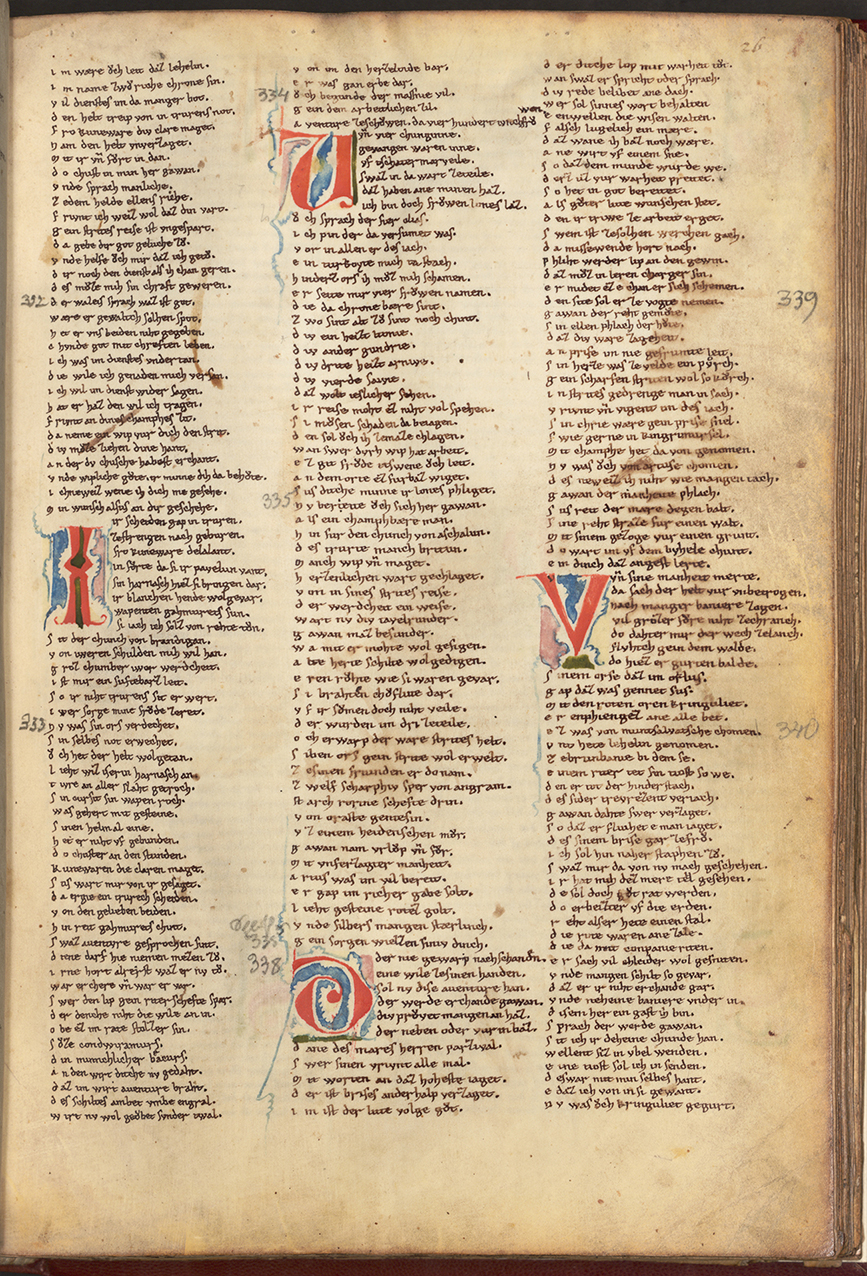 26
im wære ŏch leit daz lehelin.
im name zwo riche chrone sin.
vil dienstes im da manger bot.
den helt treip von ir trurens not.
fro kuneware div clare maget.
nam den helt vnverzaget.
mit ir vñ fŏrt in dan.
do chust in man her gawan.
vnde sprach manliche.
zedem helde ellens riche.
frivnt ich weiz wol daz din vart.
gein strites reise ist vngespart.
da gebe dir got geluche zŏ.
vnde helfe ŏch mir daz ich getŏ.
dir noch den dienst als ich chan geren.
des mŏze mih sin chraft geweren.
332
der waleis sprach waz ist got.
wære er gewaltich solhen spot.
het er vns beiden niht gegeben.
chvnde got mit chreften leben.
ich was im dienstes vndertan.
die wile ich genaden mich versan.
ich wil im dienst wider sagen.
hat er haz den wil ich tragen.
frivnt an dines champhes zit.
da neme ein wip fur dich den strit.
div mŏze ziehen dine hant.
an der dv chusche habest erchant.
vnde wiplich gŏte. ir minne dih da behŏte.
ichneweiz wenne ich dich me gesehe.
min wunsch alsus an dir geschehe.
ir scheiden gap in truren.
zestrengen nach geburen.
fro kuneware delalant.
in fŏrte da si ir pavelun vant.
sin harnasch hiez si bringen dar.
ir blanchen hende wolgevar.
wapenten gahmurets sun.
si iach ich sol von rehte tŏn.
sit der chunch von brandigan.
von iweren schulden mich wil han.
groz chumber iwer werdecheit.
ist mir ein suftebærz leit.
so ir niht trurens sit er wert.
iwer sorge mine frŏde zeret.
333
nv was sin ors verdechet.
sin selbes not erwechet.
ŏch het der helt wolgetan.
lieht wiz iserin harnasch an.
tiure an aller slaht getroch.
sin cursit sin wapen roch.
was gehert mit gesteine.
sinen helm al eine.
het er niht vf gebunden.
do chuster an den stunden.
kunewaren die claren maget.
sus wart mir von ir gesaget.
da ergie ein trurch scheiden.
von den gelieben beiden.
hin reit gahmurets chint.
swaz aventivre gesprochen sint.
dine darf hie niemen mezzen zŏ.
irne hort alrest waz er nv tŏ.
war er chere vñ war er var.
swer den lip gein riterschefte spar.
der denche niht die wile an in.
obe ez im rate stolzer sin.
sŏze condwiramurs.
din minnchlicher beacurs.
an den wirt dicke nv gedaht.
daz im wirt aventivre braht.
des schiltes ambet vmbe engral.
wirt nv vol geŏbet svnder twal.
von im den herzeloide bar.
er was gan erbe dar.
334
ŏch begunde der massnie vil.
gein dem arbeitlichen zil.
aventivre zeschŏwen. da vier hundert ivnchfrŏ
wen.
vñ vier chunginne.
gevangen waren inne.
vf tschatermarveile.
swaz in da wart zeteile.
daz haben ane minen haz.
ich bin doch frŏwen lones laz.
ŏch sprach der fier clias.
ich pin der da versumet was.
vor in allen er des iach.
ein turkoyte mich da stach.
hinderz ors ih moz mih schamen.
er seite mir vier frŏwen namen.
die da chrone bære sint.
zwo sint alt zŏ sint noch chint.
div ein heizt itonie.
div ander gundrie.
div dritte heizt arniwe.
div vierde sayve.
daz wolt ieslicher sehen.
ir reise moht ez niht vol spehen.
si mŏsen schaden da beiagen.
den sol ŏch ih zemaze chlagen.
wan swer dvrh wip hat arbeit.
ez git frŏde etswene ŏch leit.
an dem orte ez furbaz wiget.
sus dicke minne ir lones phliget.
335
nv bereite ŏch sich her gawan.
als ein champhbære man.
hin fur den chunch von aschalun.
des trurte manch brittun.
manch wip vñ maget.
herzenlichen wart gechlaget.
von in sines strites reise.
der werdecheit ein weise.
wart nv div tavelrunder.
gawan maz besunder.
wa mit er mohte wol gesigen.
alte herte schilte wolgedigen.
eren rŏhte wie si waren gevar.
si brahten chŏflute dar.
vf ir sŏmen doch niht veile.
der wurden im dri zeteile.
och erwarp der ware strites helt.
siben ors gein strite wol erwelt.
zesinen frunden er do nam.
zwelf scharphiv sper von angram.
starch rorine schefte drin.
von oraste gentesin.
vz einem heidenschen mŏr.
gawan nam vrlop vñ fŏr.
mit vnferzagter manheit.
artus was im vil bereit.
er gap im richer gabe solt.
lieht gesteine rotez golt.
vnde silbers mangen stærlinch.
gein sorgen wielzen siniv dinch.
338
der nie gewarp nach schanden.
eine wile zesinen handen.
sol nv dise aventivre han.
der werde erchande gawan.
div prŏvet mangen ane haz.
der neben oder fur in baz.
dane des mæres herren parzival.
swer sinen vrivnt alle mal.
mit worten an daz hoheste iaget.
der ist brises anderhalp verzaget.
im ist der lute volge gŏt.
der dicke lop mit warheit tŏt.
wan swaz er spricht oder sprach.
div rede belibet ane dach.
wer sol sinnes wort behalten
enwellen die wisen walten.
falsch lugelich ein mære.
daz wæne ih baz noch wære.
ane wirt vf einem sne.
so daz dem munde wurde we.
derz uz fur warheit preitet.
so het in got bereitet.
als gŏter lute wunschen stet.
den ir triwe ze arbeit erget.
swem ist zesolhen werchen gach.
da missewende hort nach.
phliht werder lip an den gewin.
daz moz in leren chranger sin.
er midet ez e chan er sich schemen.
den site sol er ze vogte nemen.
339
gawan der reht gemŏte.
sin ellen phlach der hŏte.
daz div ware zagheit.
an prise im nie gefrumte leit.
sin herze was ze velde ein pŭrch.
gein scharfen striten wol so kŏrch.
in strites gedrenge man in sach.
vrivnt vñ vigent im des iach.
sin crie wære gein prise snel.
swie gerne in kingrimursel.
mit champhe het da von genomen.
nv was ŏch von artuse chomen.
desneweiz ih niht wie mangen tach.
gawan der manheite phlach.
sus reit der mære degen balt.
sine reht straze fur einen walt.
mit sinem gezoge vur einen grunt.
do wart im vf dem byhele chunt.
ein dinch daz angest lerte.
vñ sine manheit merte.
da sach der helt fur vnbetrogen.
nach manger baniere zogen.
vil grŏzer fŏre niht zechranch.
do dahter mir der wech zelanch.
flvhtch gein dem walde.
do hiez er gurten balde.
sinem orse daz im orilus.
gap daz was gennet sus.
mit den roten oren kringuliet.
er enphiengez ane alle bet.
340
ez was von muntsalvatsche chomen.
vnt hete lehelin genomen.
zebrunbanie bi dem se.
einem riter tet sin tiost so we.
den er tot der hinder stach.
des sider trevrezent veriach.
gawan dahte swer verzaget.
so daz er flivhet e man iaget.
des sinem brise gar zefrŏ.
ich sol hin naher staphen zŏ.
swaz mir da von nv mach geschehen.
ir hat mich dez mere teil gesehen.
des sol doch gŏt rat werden.
do erbeizter vf die erden.
reht als er hete einen stal.
die rote waren ane zale.
die da mit companie riten.
er sach vil chleider wol gesniten.
vnde mangen schilt so gevar.
daz er ir niht erchande gar.
vnde neheine baniere vnder in.
disem her ein gast ih bin.
sprach der werde gawan.
sit ich ir deheine chunde han.
wellent siz in vbel wenden.
eine tiost sol ich in senden.
deswar mit min selbes hant.
e daz ich von in si gewant.
nv was ŏch kringuliet gegurt.